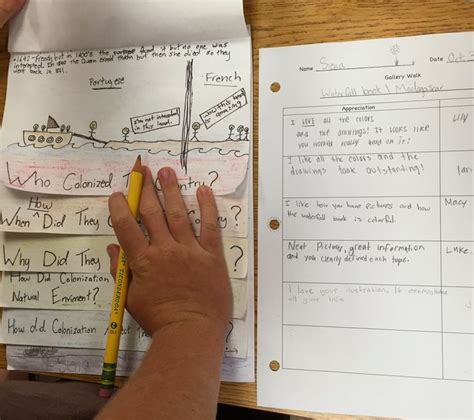 French but in 1800's the Portugese found it but no one was
interested. In the Queen but then she died so they
went back in
Portugese
French
I'm not intrested
in this land.
Wow this land
is amazing
Who Colonized The Country?
How
When ^ Did They ?
Why Did They ?
How Did Colonization
Natural Enviment?
How did Colonization
TICONDEROGA
Name Sean
Date Oct
Gallery Walk
Waterfall book / Madagascar
Appreciation
I LOVE all the colors
and the drawings! It looks like
you worked really hard on it!
Lily
I like all the colors and the
drawings look outstanding!
I like how you have pictures and how
the waterfall book is colorful.
Macy
Neat Pictures, great information
and you clearly defined each topic.
Luke
I love your illustrations. It